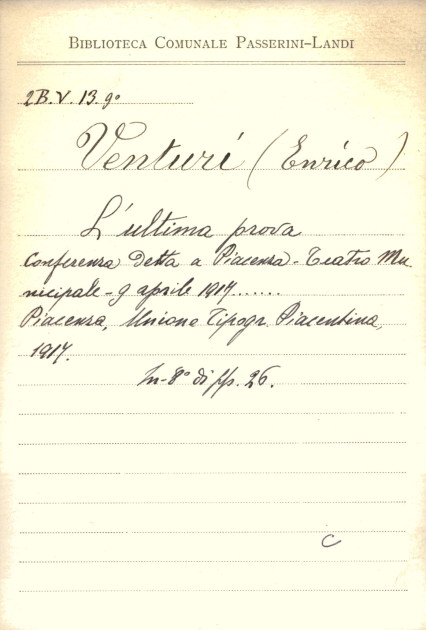 BIBLIOTECA COMUNALE PASSERINI-LANDI
2B.V.13.9º
Venturi (Enrico)
L'ultima prova
Conferenza detta a Piacenza - Teatro Mu-
nicipale - 9 aprile 1917......
Piacenza, Unione Tipogr. Piacentina,
1917.
In-8º di pp. 26.
C